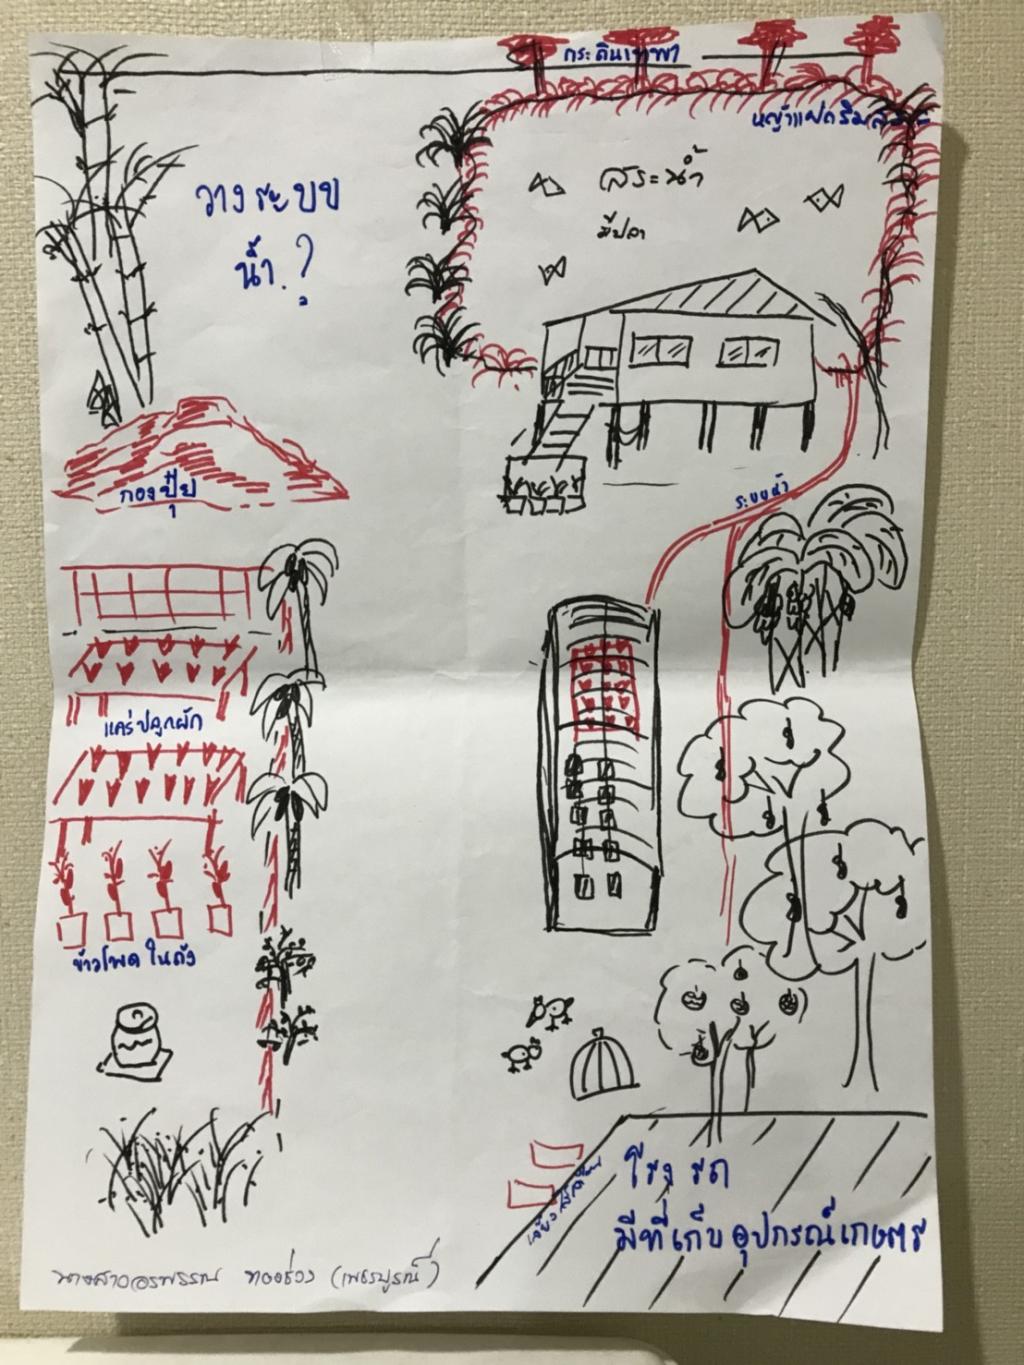 กระถินเทพา
หญ้าแฝกริมสระ
วางระบบ
น้ำ.?
สระน้ำ
มีปลา
กองปุ๋ย
ระบบน้ำ
แคร่ปลูกผัก
ข้าวโพดในถัง
โรงรถ
มีที่เก็บอุปกรณ์เกษตร
นางสาวอรพรรณ (เพชรบูรณ์)